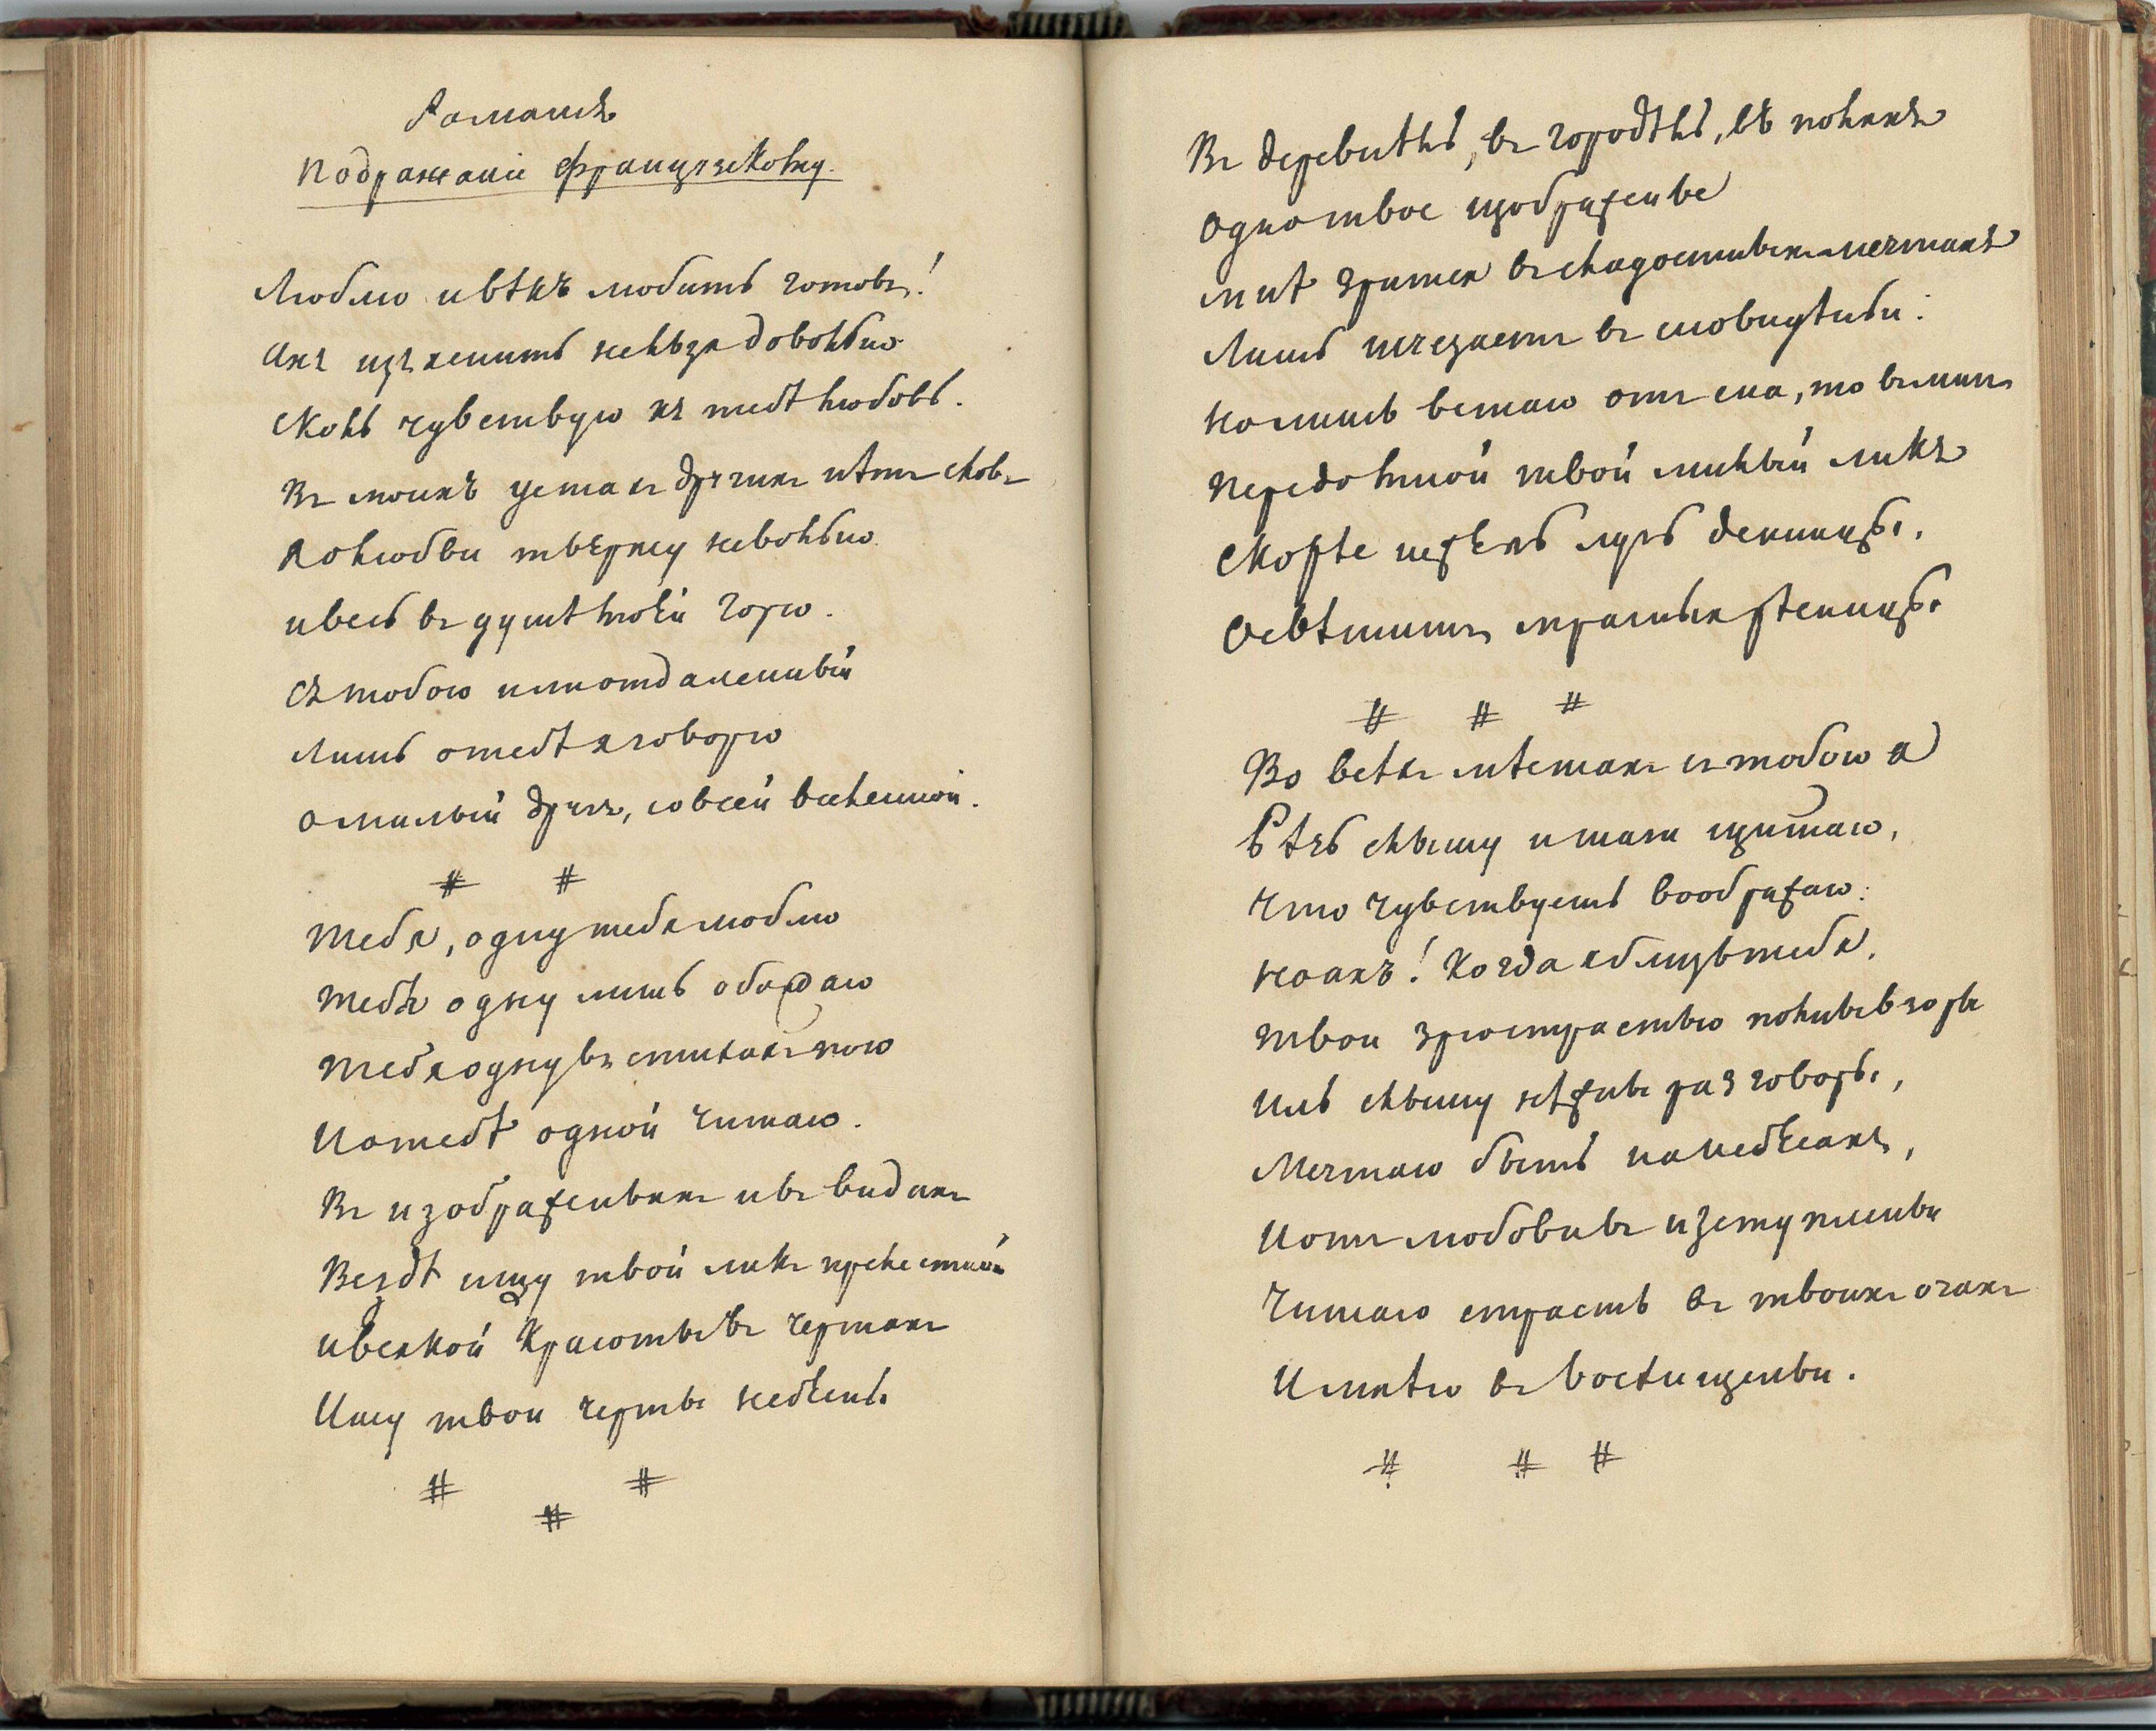 Романсъ
Подражаніе французскому.
Люблю и вѣкъ любить готовъ!
Ахъ изъяснить нельзя довольно
Сколь чувствую къ тебѣ любовь.
Въ моихъ устахъ другихъ нѣтъ словъ
Я о любви твержу невольно
и весь въ душѣ моей горю.
Съ тобою или отдаленный
Лишь о тебѣ я говорю
О милый другъ, со всей вселенной.
# #
Тебя, одну тебя люблю
Тебя одну лишь обожаю
Тебя одну въ стихахъ пою
И о тебѣ одной читаю.
Въ изображеньяхъ и въ видахъ
Вездѣ ищу твой ликъ прелестной
И всякой красоты въ чертахъ
Ищу твои черты небесны
# # #
Въ деревнѣ ль, въ городѣ ль, въ поляхъ
Одно твое изображенье
Мнѣ зрится въ сладостныхъ мечтахъ
Лишь исчезаетъ въ сновидѣньи:
Но лишь встаю отъ сна, то въ мигъ
Передо мной твой милый ликъ
Скорѣе нежель лучь денницы,
Освѣтитъ мрачныя рѣсницы
# # #
Во всѣхъ мѣстахъ съ тобою я
Рѣчь слышу и шаги щитаю,
Что чувствуешь воображаю:
Но ахъ! Когда я близь тебя,
Твои зрю страстью полны взоры
Иль слышу нѣжны разговоры,
Мечтаю быть на небесахъ,
И отъ любови въ изступленьи
Читаю страсть въ твоихъ очахъ
И млѣю въ восхищеньи.
# # #